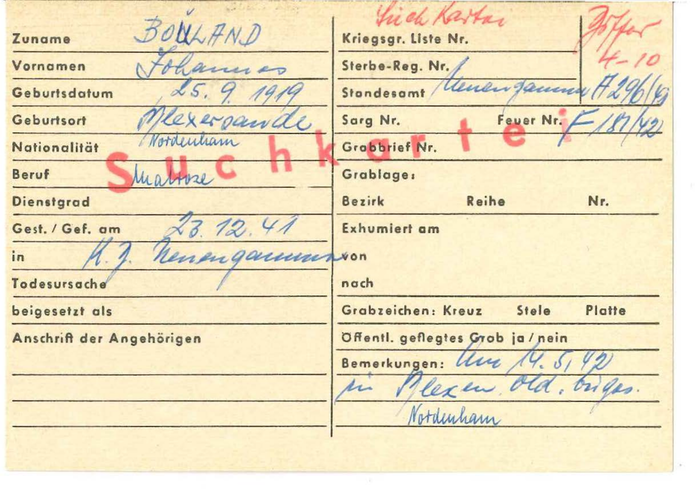 Zuname BOULAND
Vornamen Johannes
Geburtsdatum 25.9.1919
Geburtsort Blexersande
Nordenham
Nationalität
Beruf Matrose
Dienstgrad
Gest./Gef. am 23.12.41
in K. Z. Neuengamme
Todesursache
beigesetzt als
Anschrift der Angehörigen
Suchkartei
Such Kartei
4-10
Kriegsgr. Liste Nr.
Sterbe-Reg. Nr.
Standesamt Neuengamme A 296/49
Sarg Nr. Feuer Nr. F 181/42
Grabbrief Nr.
Grablage:
Bezirk Reihe Nr.
Exhumiert am
von
nach
Grabzeichen: Kreuz Stele Platte
Öffentl. geflegtes Grab ja/nein
Bemerkungen: Am 14.5.42
in Blexen Old.
Nordenham